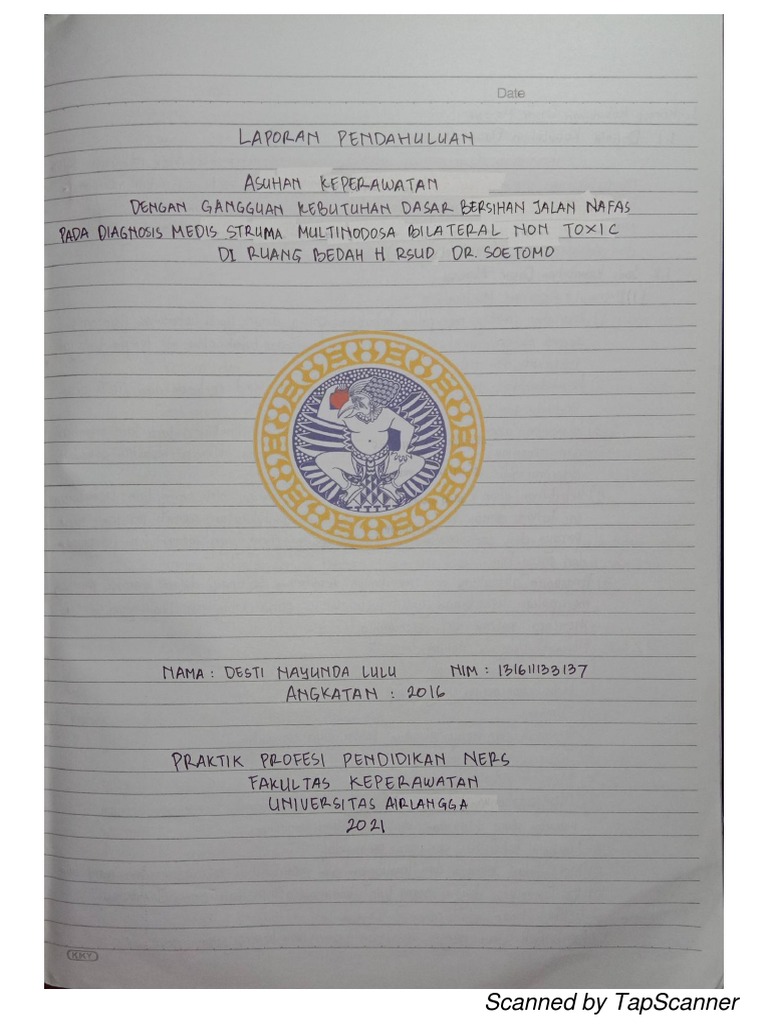 Date
LAPORAN PENDAHULUAN
ASUHAN KEPERAWATAN
DENGAN GANGGUAN KEBUTUHAN DASAR BERSIHAN JALAN NAFAS
PADA DIAGNOSIS MEDIS STRUMA MULTINODOSA BILATERAL NON TOXIC
DI RUANG BEDAH H RSUD DR. SOETOMO
NAMA : DESTI NAYUNDA LULU NIM : 131611133137
ANGKATAN : 2016
PRAKTIK PROFESI PENDIDIKAN NERS
FAKULTAS KEPERAWATAN
UNIVERSITAS AIRLANGGA
2021
KKY
Scanned by TapScanner